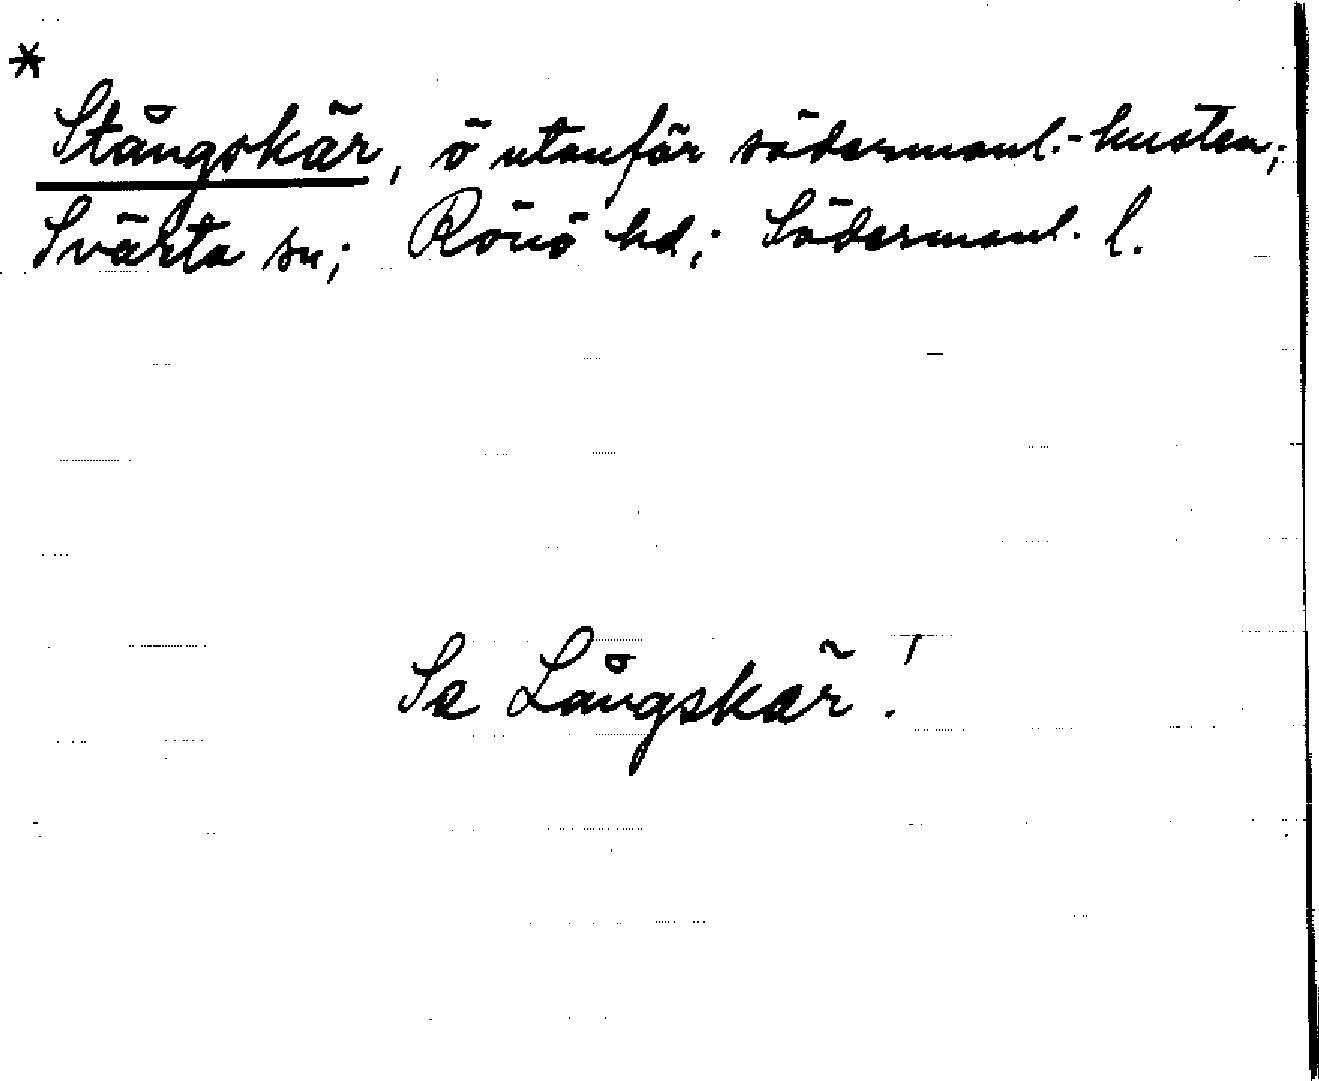 *
Stångskär, ö utanför södermanl.-kusten;
Svärta sn; Rönö hd; Södermanl. l.
Se Långskär!